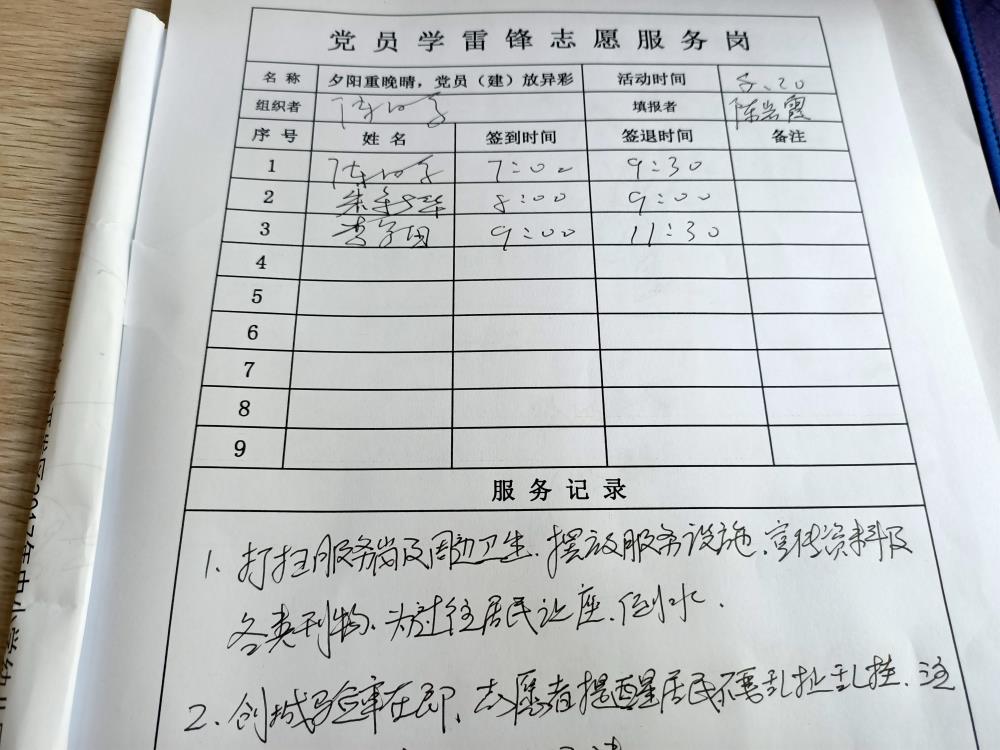 党员学雷锋志愿服务岗
名称 夕阳重晚晴，党员（建）放异彩 活动时间 8.20
组织者 填报者 陈岩霞
序号 姓名 签到时间 签退时间 备注
1 7:00 9:30
2 8:00 9:00
3 9:00 11:30
4
5
6
7
8
9
服务记录
1、打扫服务岗及周边卫生、摆放服务设施、宣传资料及
各类刊物、为过往居民让座、倒水.
2、创城验审在即、志愿者提醒居民不要乱扯乱挂、注